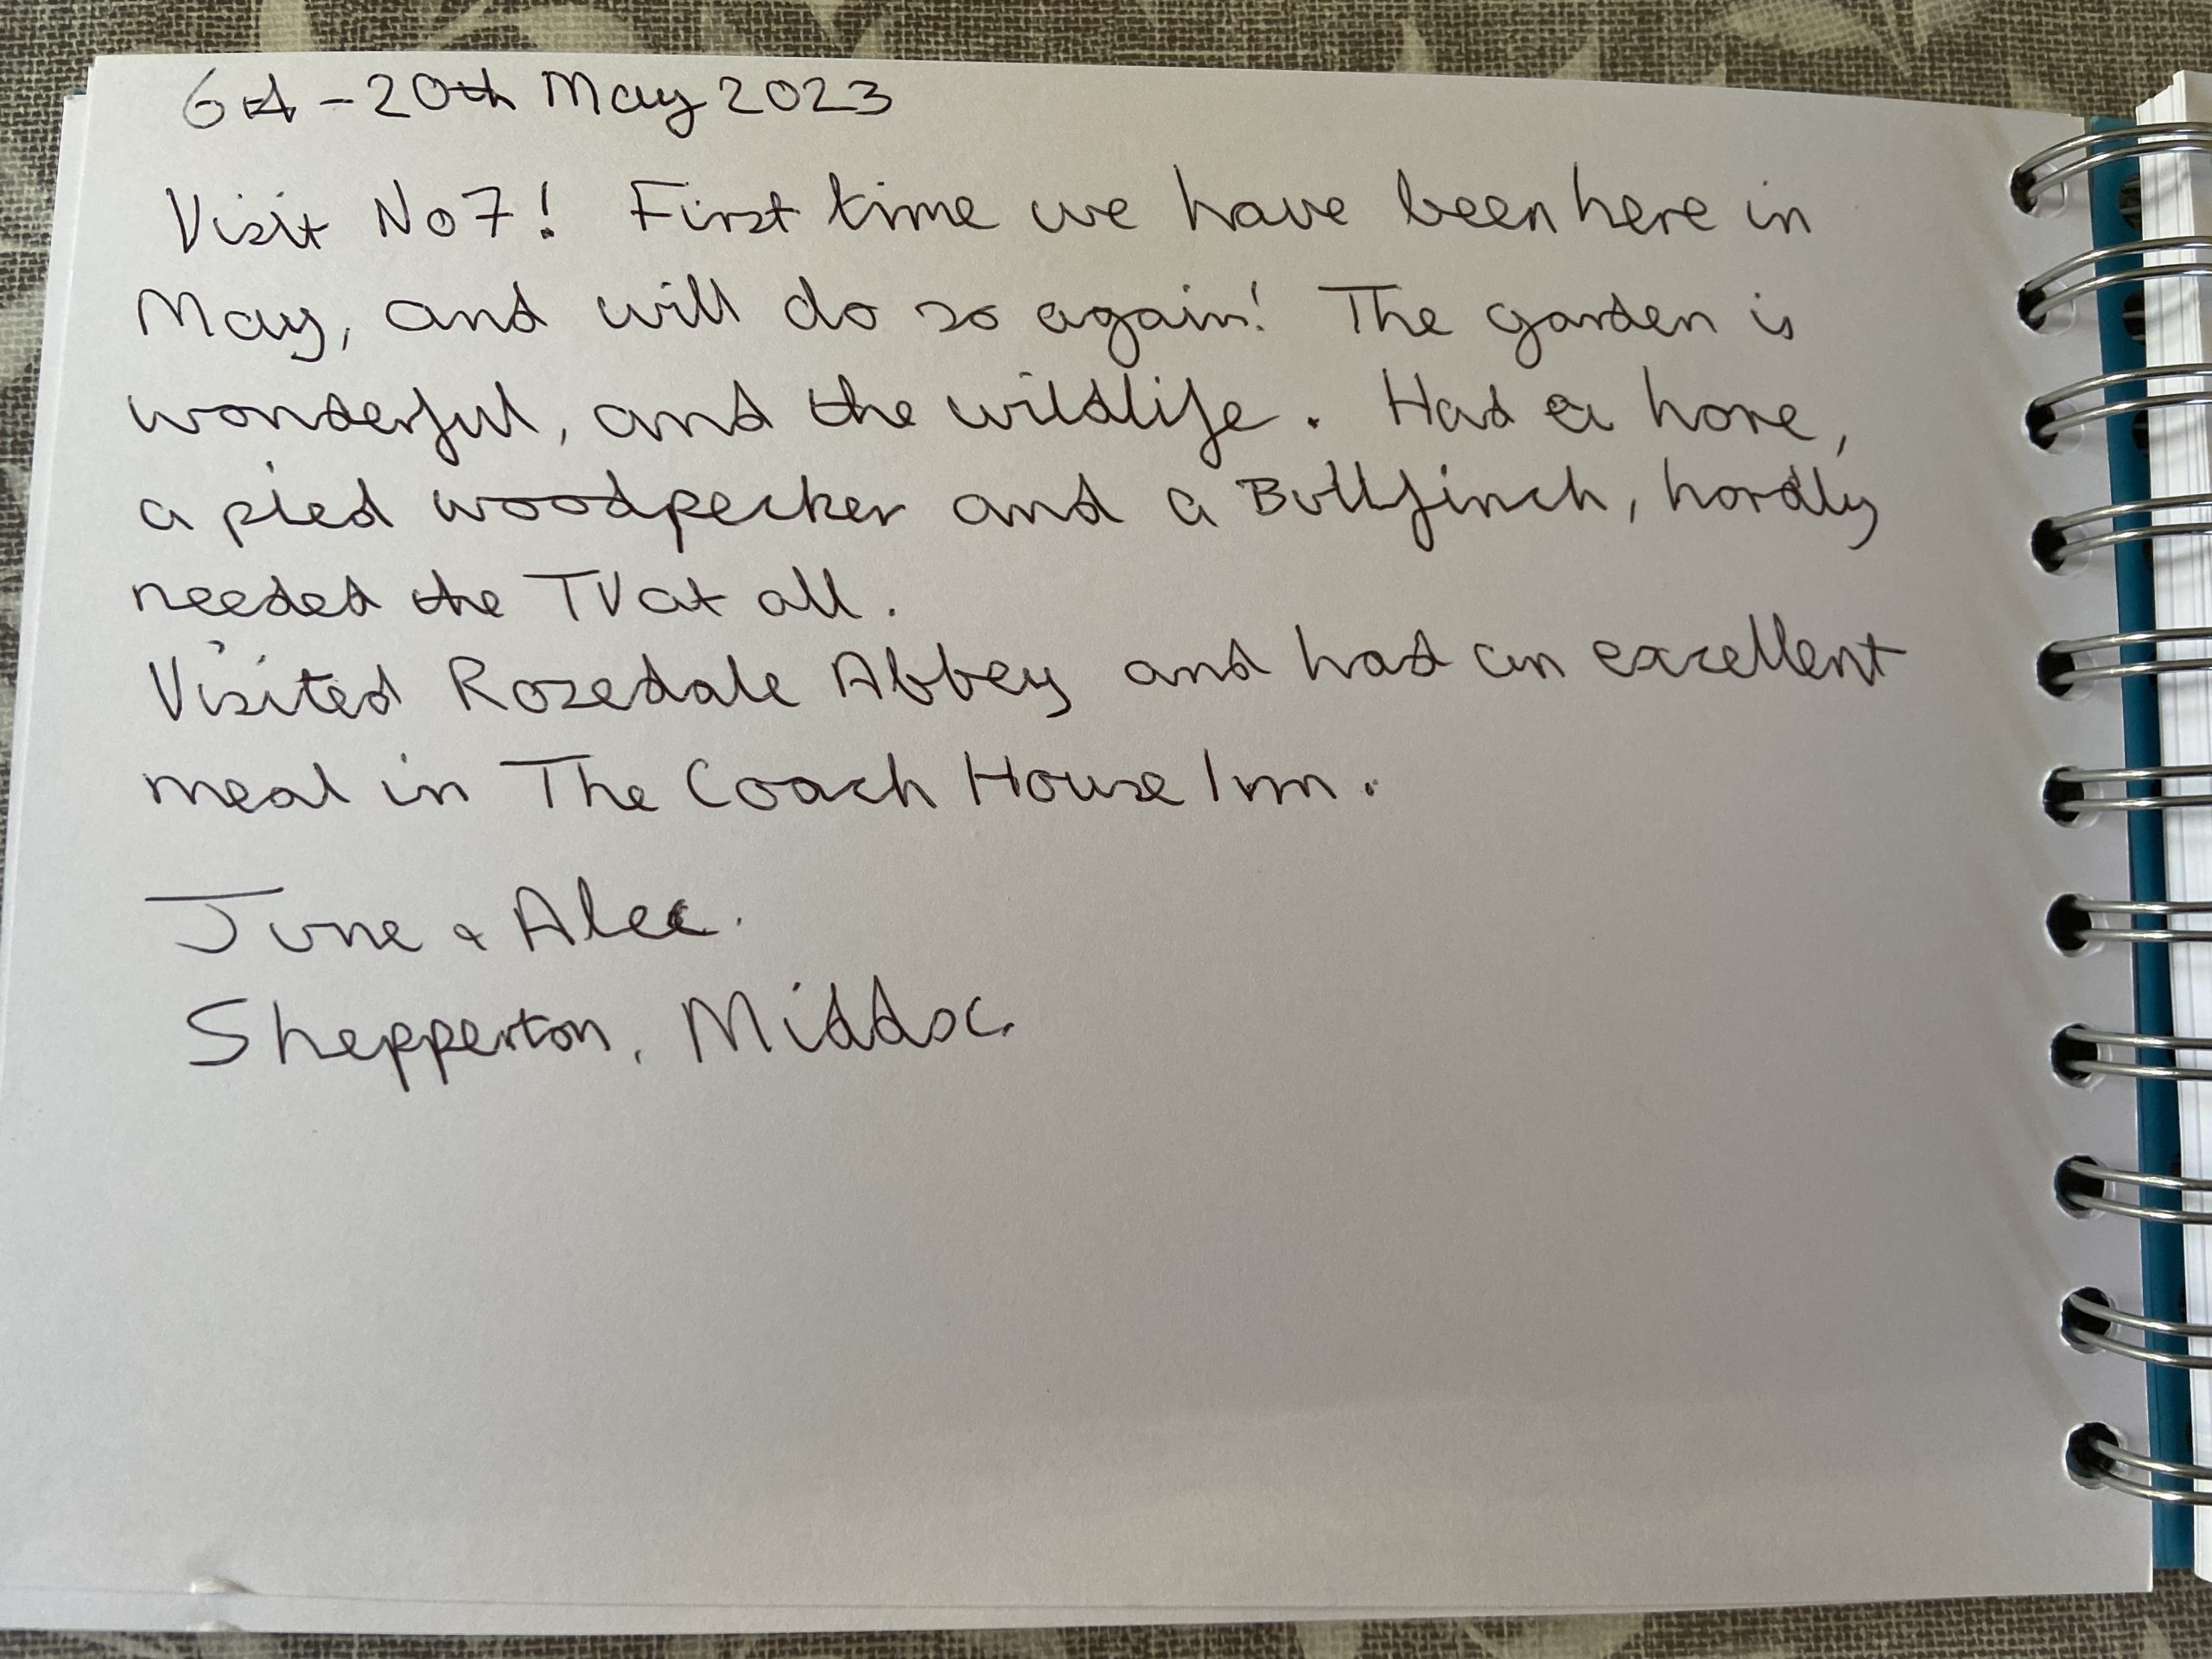 6th - 20th May 2023
Visit No 7! First time we have been here in
May, and will do so again! The garden is
wonderful, and the wildlife. Had a hare,
a pied woodpecker and a Bullfinch, hardly
needed the TV at all.
Visited Rosedale Abbey and had an excellent
meal in The Coach House Inn.
June & Alec.
Shepperton, Middx.